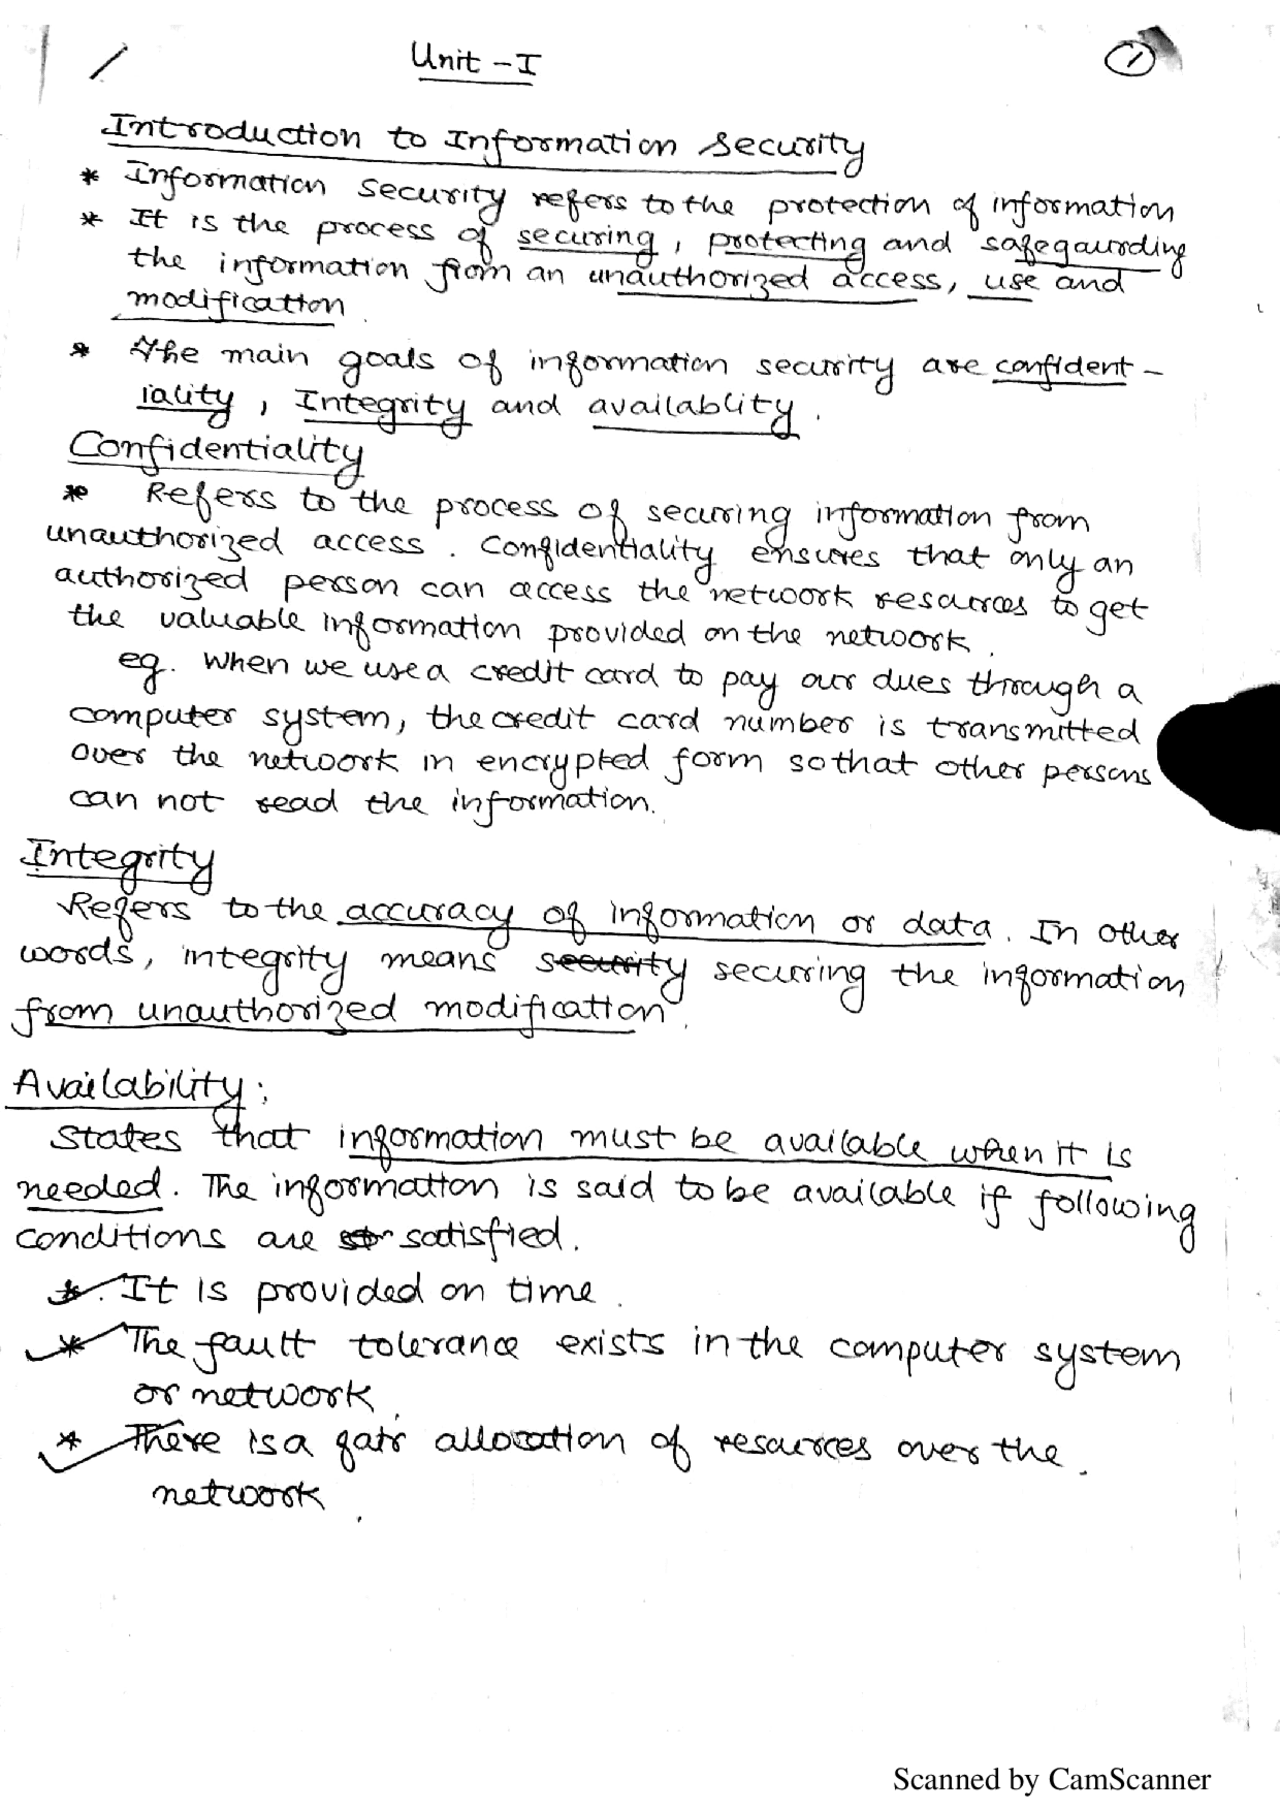 Unit - I
1
Introduction to Information Security
* Information security refers to the protection of information
* It is the process of securing, protecting and safegaurding
the information from an unauthorized access, use and
modification.
* The main goals of information security are confident-
iality, Integrity and availablity.
Confidentiality
* Refers to the process of securing information from
unauthorized access. Confidentiality ensures that only an
authorized person can access the network resources to get
the valuable information provided on the network.
eg. When we use a credit card to pay our dues through a
computer system, the credit card number is transmitted
over the network in encrypted form so that other persons
can not read the information.
Integrity
Refers to the accuracy of information or data. In other
words, integrity means security securing the information
from unauthorized modification.
Availability:
States that information must be available when it is
needed. The information is said to be available if following
conditions are satisfied.
* It is provided on time.
* The fault tolerance exists in the computer system
or network.
* There is a fair allocation of resources over the
network.
Scanned by CamScanner